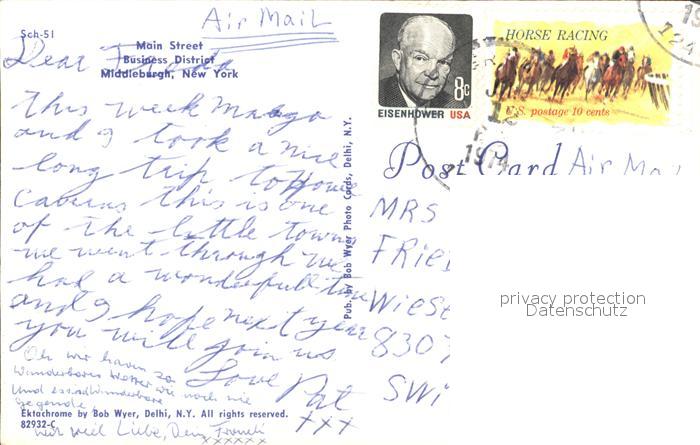 Air Mail
Sch-51
Main Street
Business District
Middleburgh, New York
Dear
This week Margo
and I took a nice
long trip to Howes
Caverns this is one
of the little towns
we went through we
had a wonderfull time
and I hope next year
you will join us
Love Pat
xxx
Oh wir haven so
Wunderbares Wetter wie noch nie
Und essind Wunderbare
Gegende,
viel Liebe, Dein
xxxxxx
Ektachrome by Bob Wyer, Delhi, N.Y. All rights reserved.
82932-C
Pub. by Bob Wyer Photo Cards, Delhi, N.Y.
8c
EISENHOWER USA
HORSE RACING
U.S. postage 10 cents
1974
Post Card Air Mai
MRS
FRie
Wiese
8307
SWi
privacy protection
Datenschutz